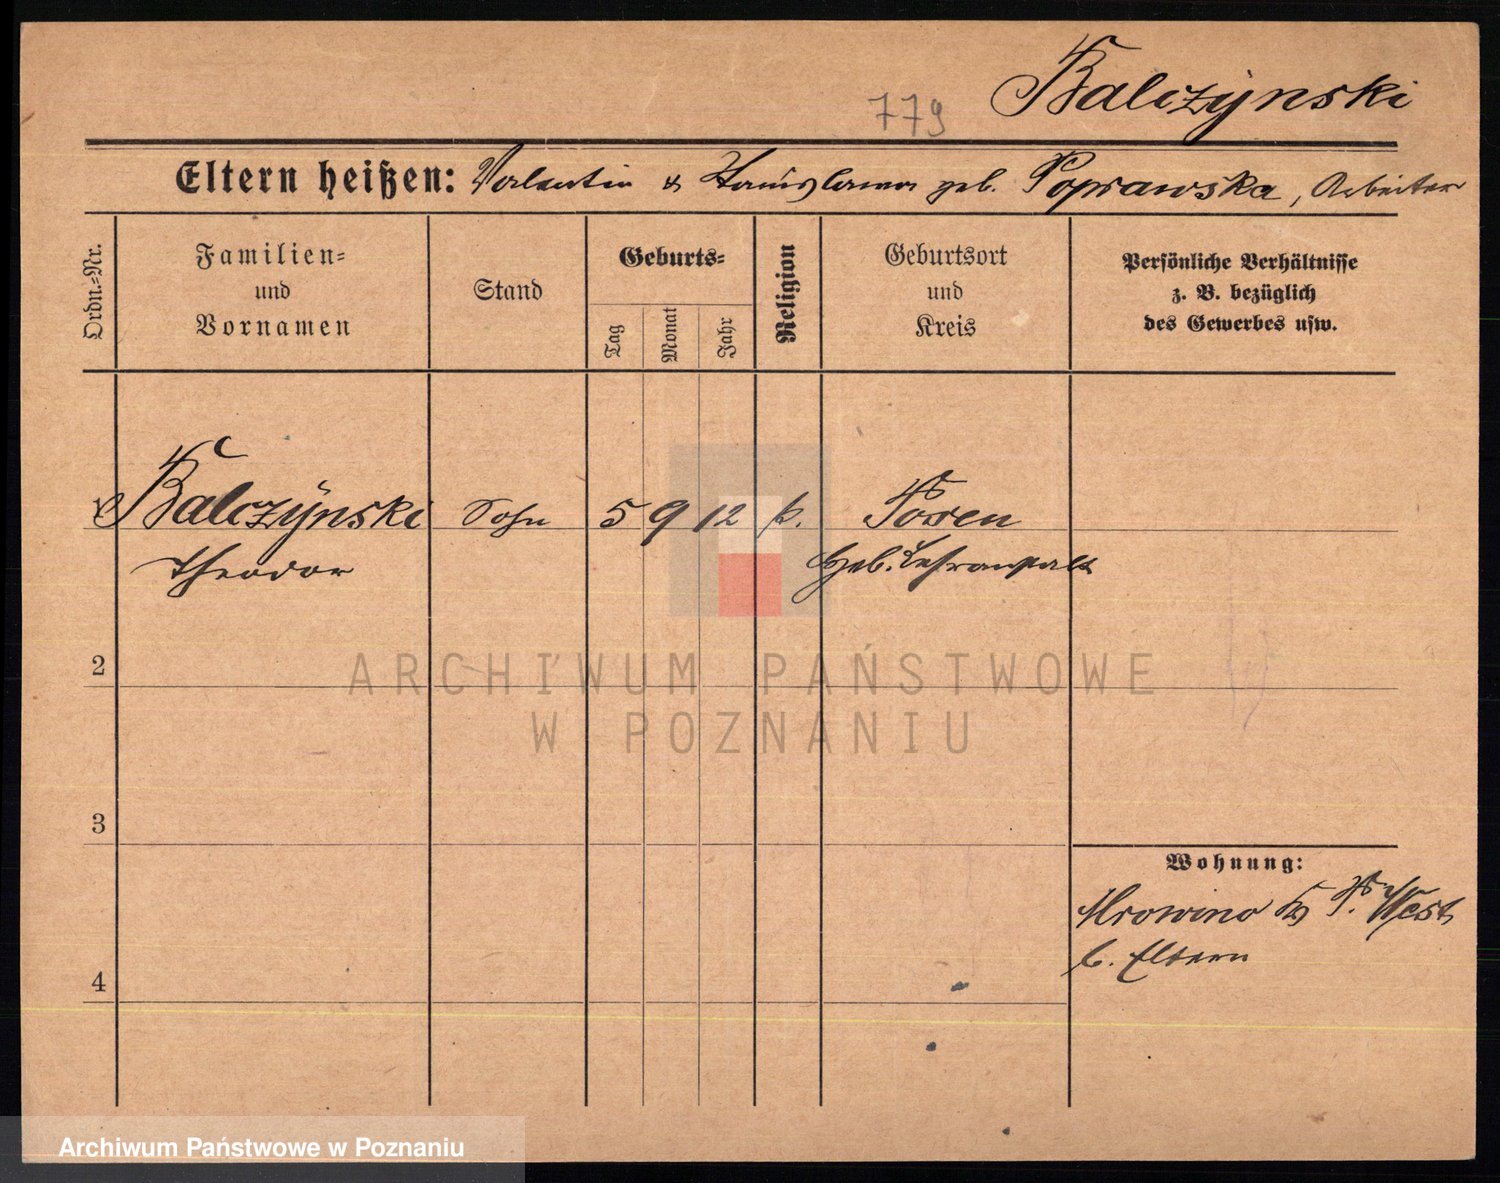 Balczÿnski
779
Eltern heißen: Valentin & Stanislawa geb. Poprawska, Arbeiter
Ordn.=Nr.
Familien=
und
Vornamen
Stand
Geburts=
Tag
Monat
Jahr
Religion
Geburtsort
und
Kreis
Persönliche Verhältnisse
z. B. bezüglich
des Gewerbes usw.
1 Balczÿnski Sohn 5 9 12 k. Posen
Theodor Geb. Lehranstalt
ARCHIWUM PAŃSTWOWE
W POZNANIU
2
3
Wohnung:
Mrowino Krs P. West
b. Eltern
4
Archiwum Państwowe w Poznaniu